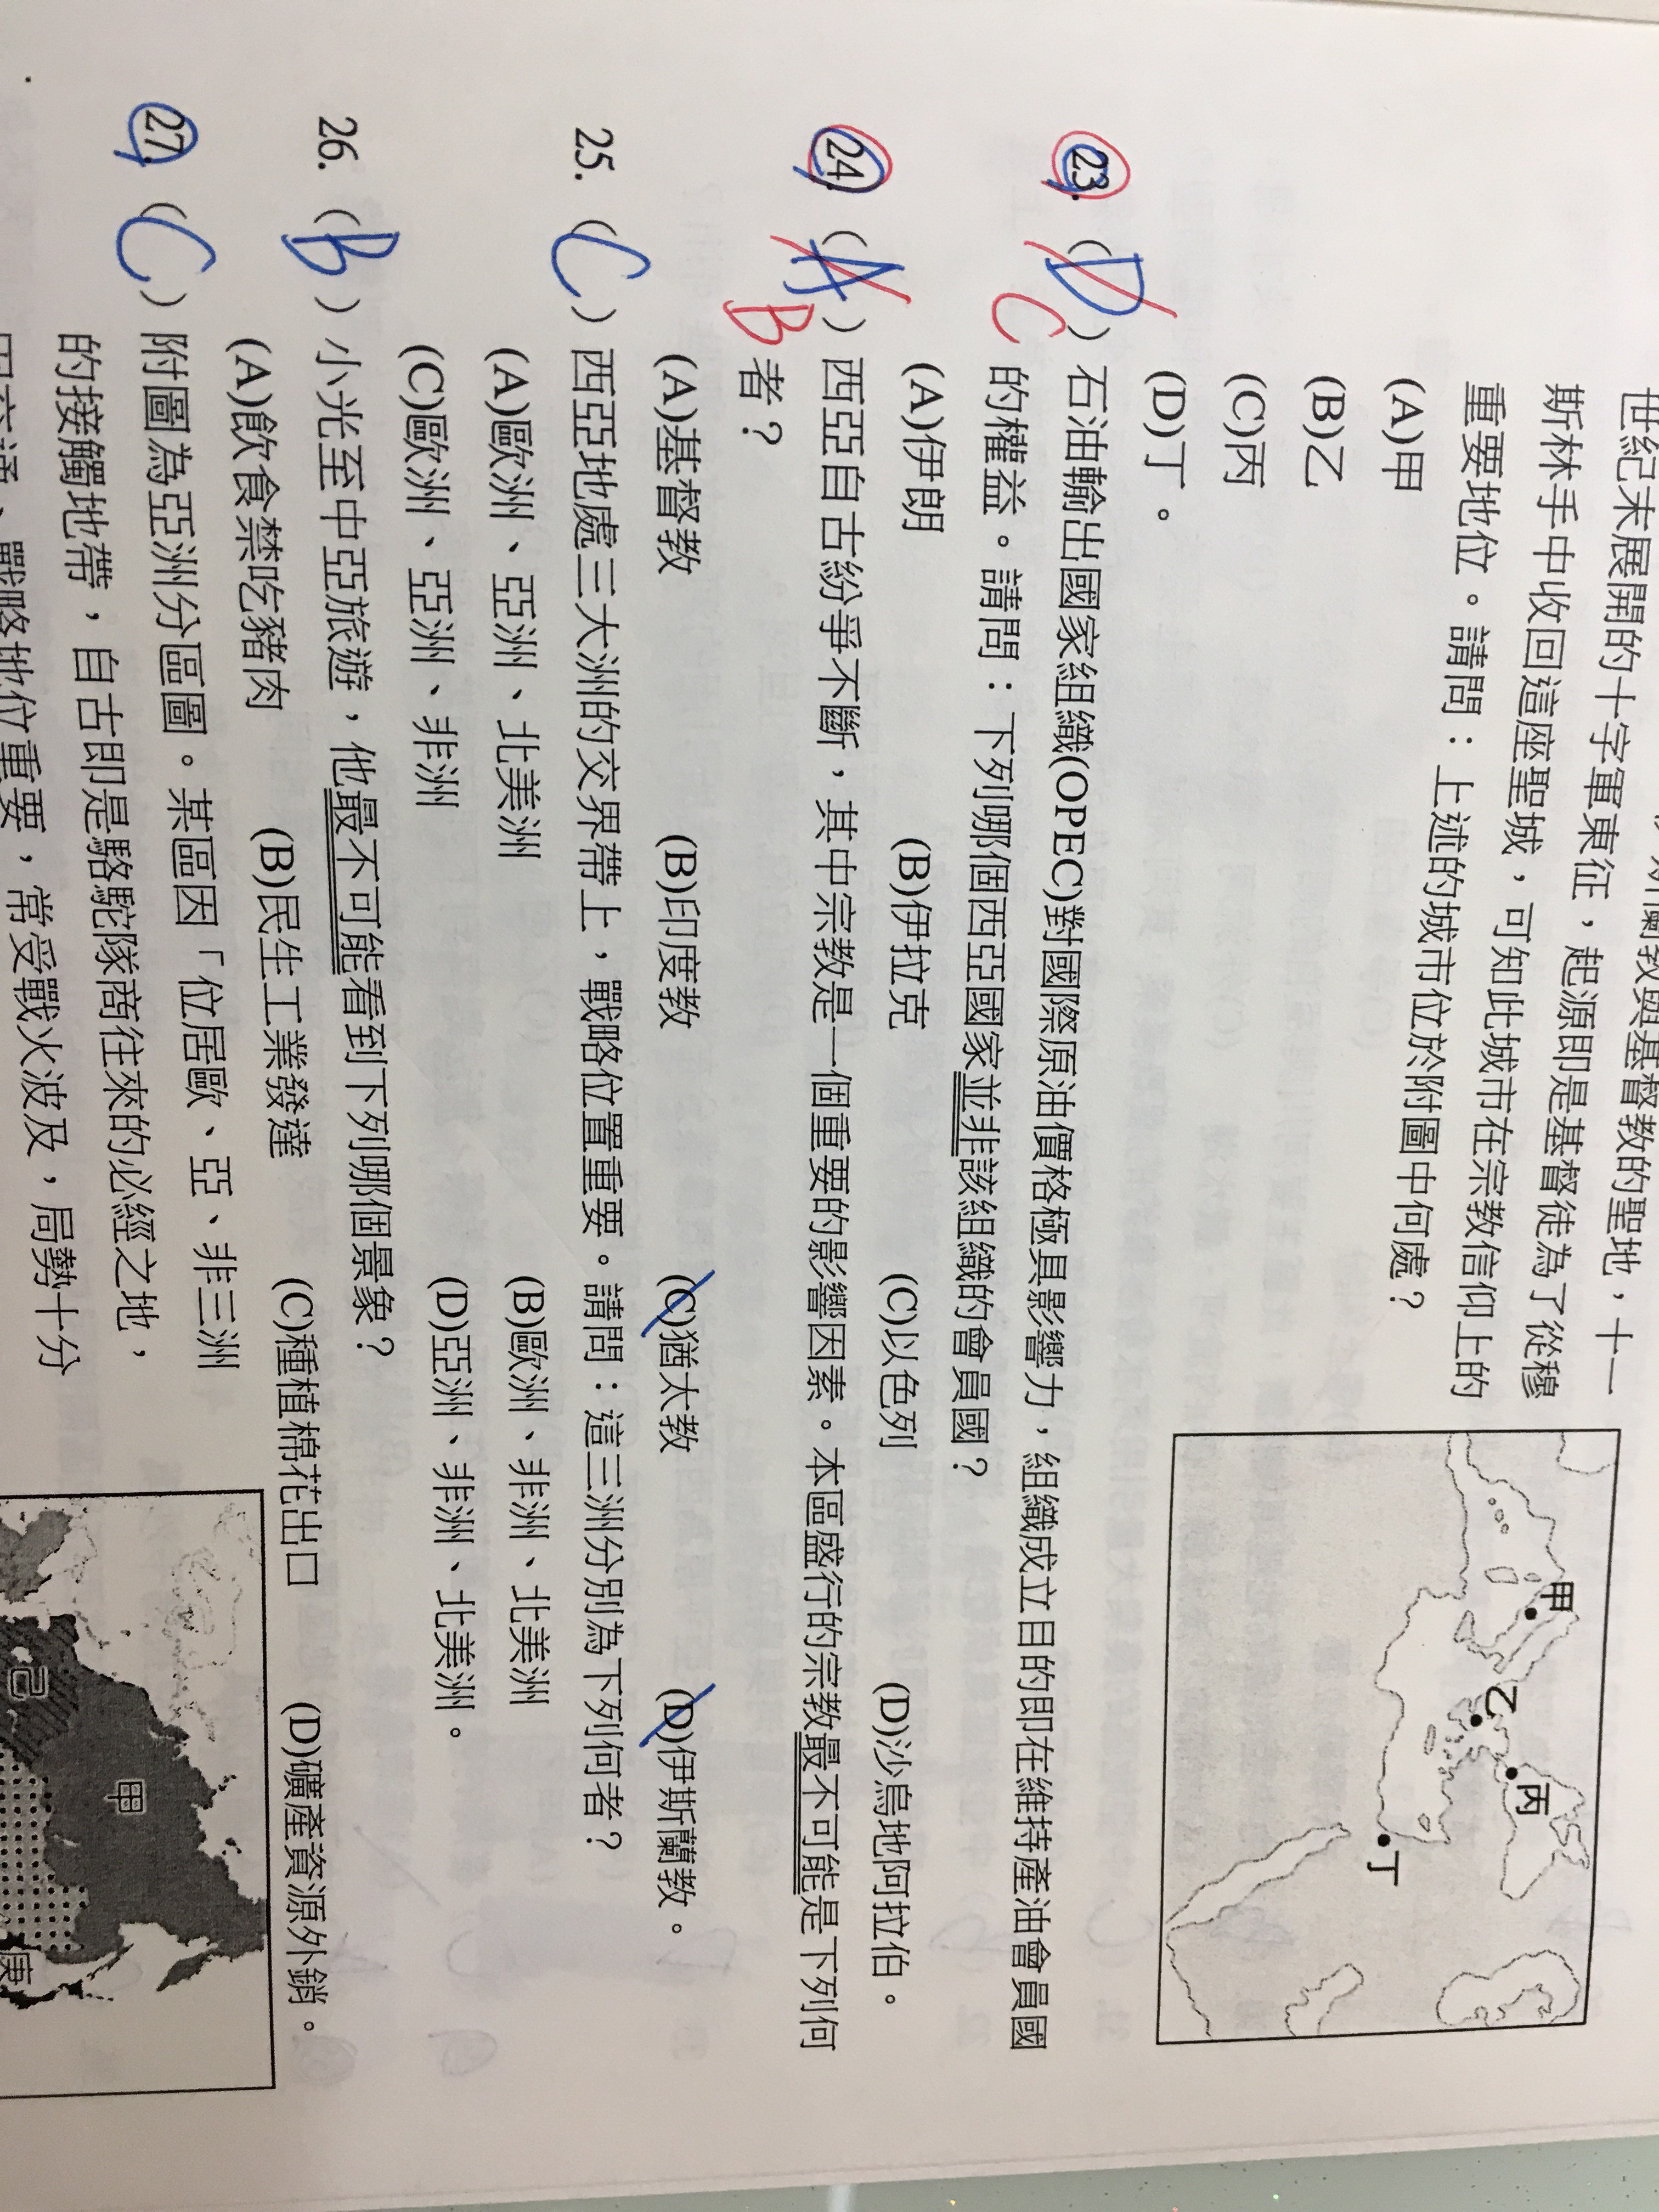 斯林手中收回這座聖城，可知此城市在宗教信仰上的
重要地位。請問：上述的城市位於附圖中何處？
(A)甲
(B)乙
(C)丙
(D)丁。
甲
乙
丙
丁
23. (D) 石油輸出國家組織(OPEC)對國際原油價格極具影響力，組織成立目的即在維持產油會員國
C 的權益。請問：下列哪個西亞國家並非該組織的會員國？
(A)伊朗 (B)伊拉克 (C)以色列 (D)沙烏地阿拉伯。
24. (A) 西亞自古紛爭不斷，其中宗教是一個重要的影響因素。本區盛行的宗教最不可能是下列何
B 者？
(A)基督教 (B)印度教 (C)猶太教 (D)伊斯蘭教。
25. (C) 西亞地處三大洲的交界帶上，戰略位置重要。請問：這三洲分別為下列何者？
(A)歐洲、亞洲、北美洲 (B)歐洲、非洲、北美洲
(C)歐洲、亞洲、非洲 (D)亞洲、非洲、北美洲。
26. (B) 小光至中亞旅遊，他最不可能看到下列哪個景象？
(A)飲食禁吃豬肉 (B)民生工業發達 (C)種植棉花出口 (D)礦產資源外銷。
27. (C) 附圖為亞洲分區圖。某區因「位居歐、亞、非三洲
的接觸地帶，自古即是駱駝隊商往來的必經之地，
戰略地位重要，常受戰火波及，局勢十分
己
甲
庚